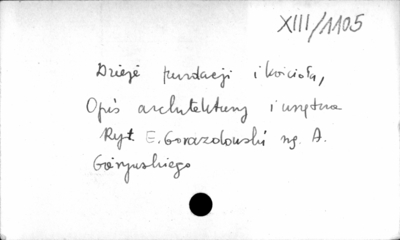 XIII/1105
Dzieje fundacji i kościoła,
Opis architektury i wnętrza
Ryt. E. Gorazdowski wg. A.
Goryńskiego